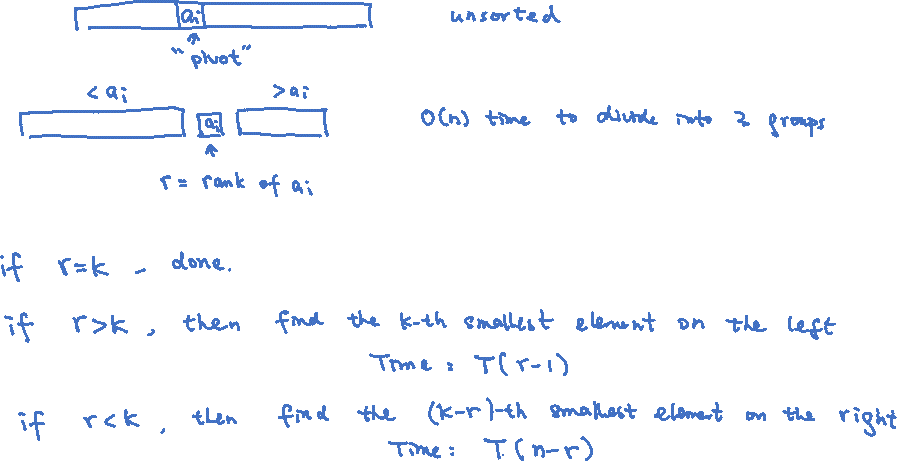 aᵢ unsorted
"pivot"
< aᵢ > aᵢ
aᵢ O(n) time to divide into 2 groups
r = rank of aᵢ
if r=k , done.
if r>k , then find the k-th smallest element on the left
Time : T(r-1)
if r<k , then find the (k-r)-th smallest element on the right
Time : T(n-r)